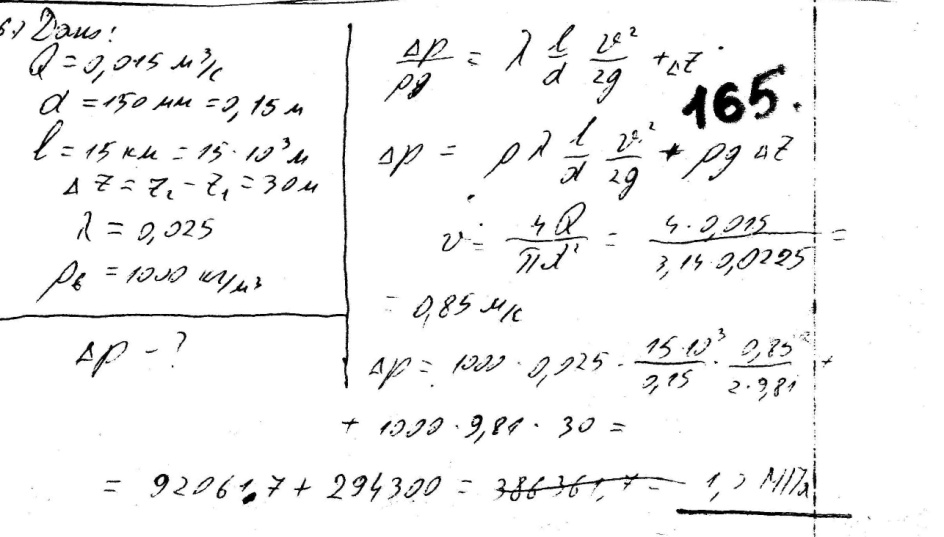 Дано:
Q = 0,015 м³/с
d = 150 мм = 0,15 м
l = 15 км = 15·10³ м
Δz = z₂ - z₁ = 30 м
λ = 0,025
ρв = 1000 кг/м³
Δp - ?
Δp/ρg = λ l/d v²/2g + Δz
165.
Δp = ρλ l/d v²/2g + ρgΔz
v = 4Q/πd² = 4·0,015/3,14·0,0225 =
= 0,85 м/с
Δp = 1000 · 0,025 · 15·10³/0,15 · 0,85²/2·9,81 +
+ 1000 · 9,81 · 30 =
= 92061,7 + 294300 = 386361,7 = 1,2 МПа